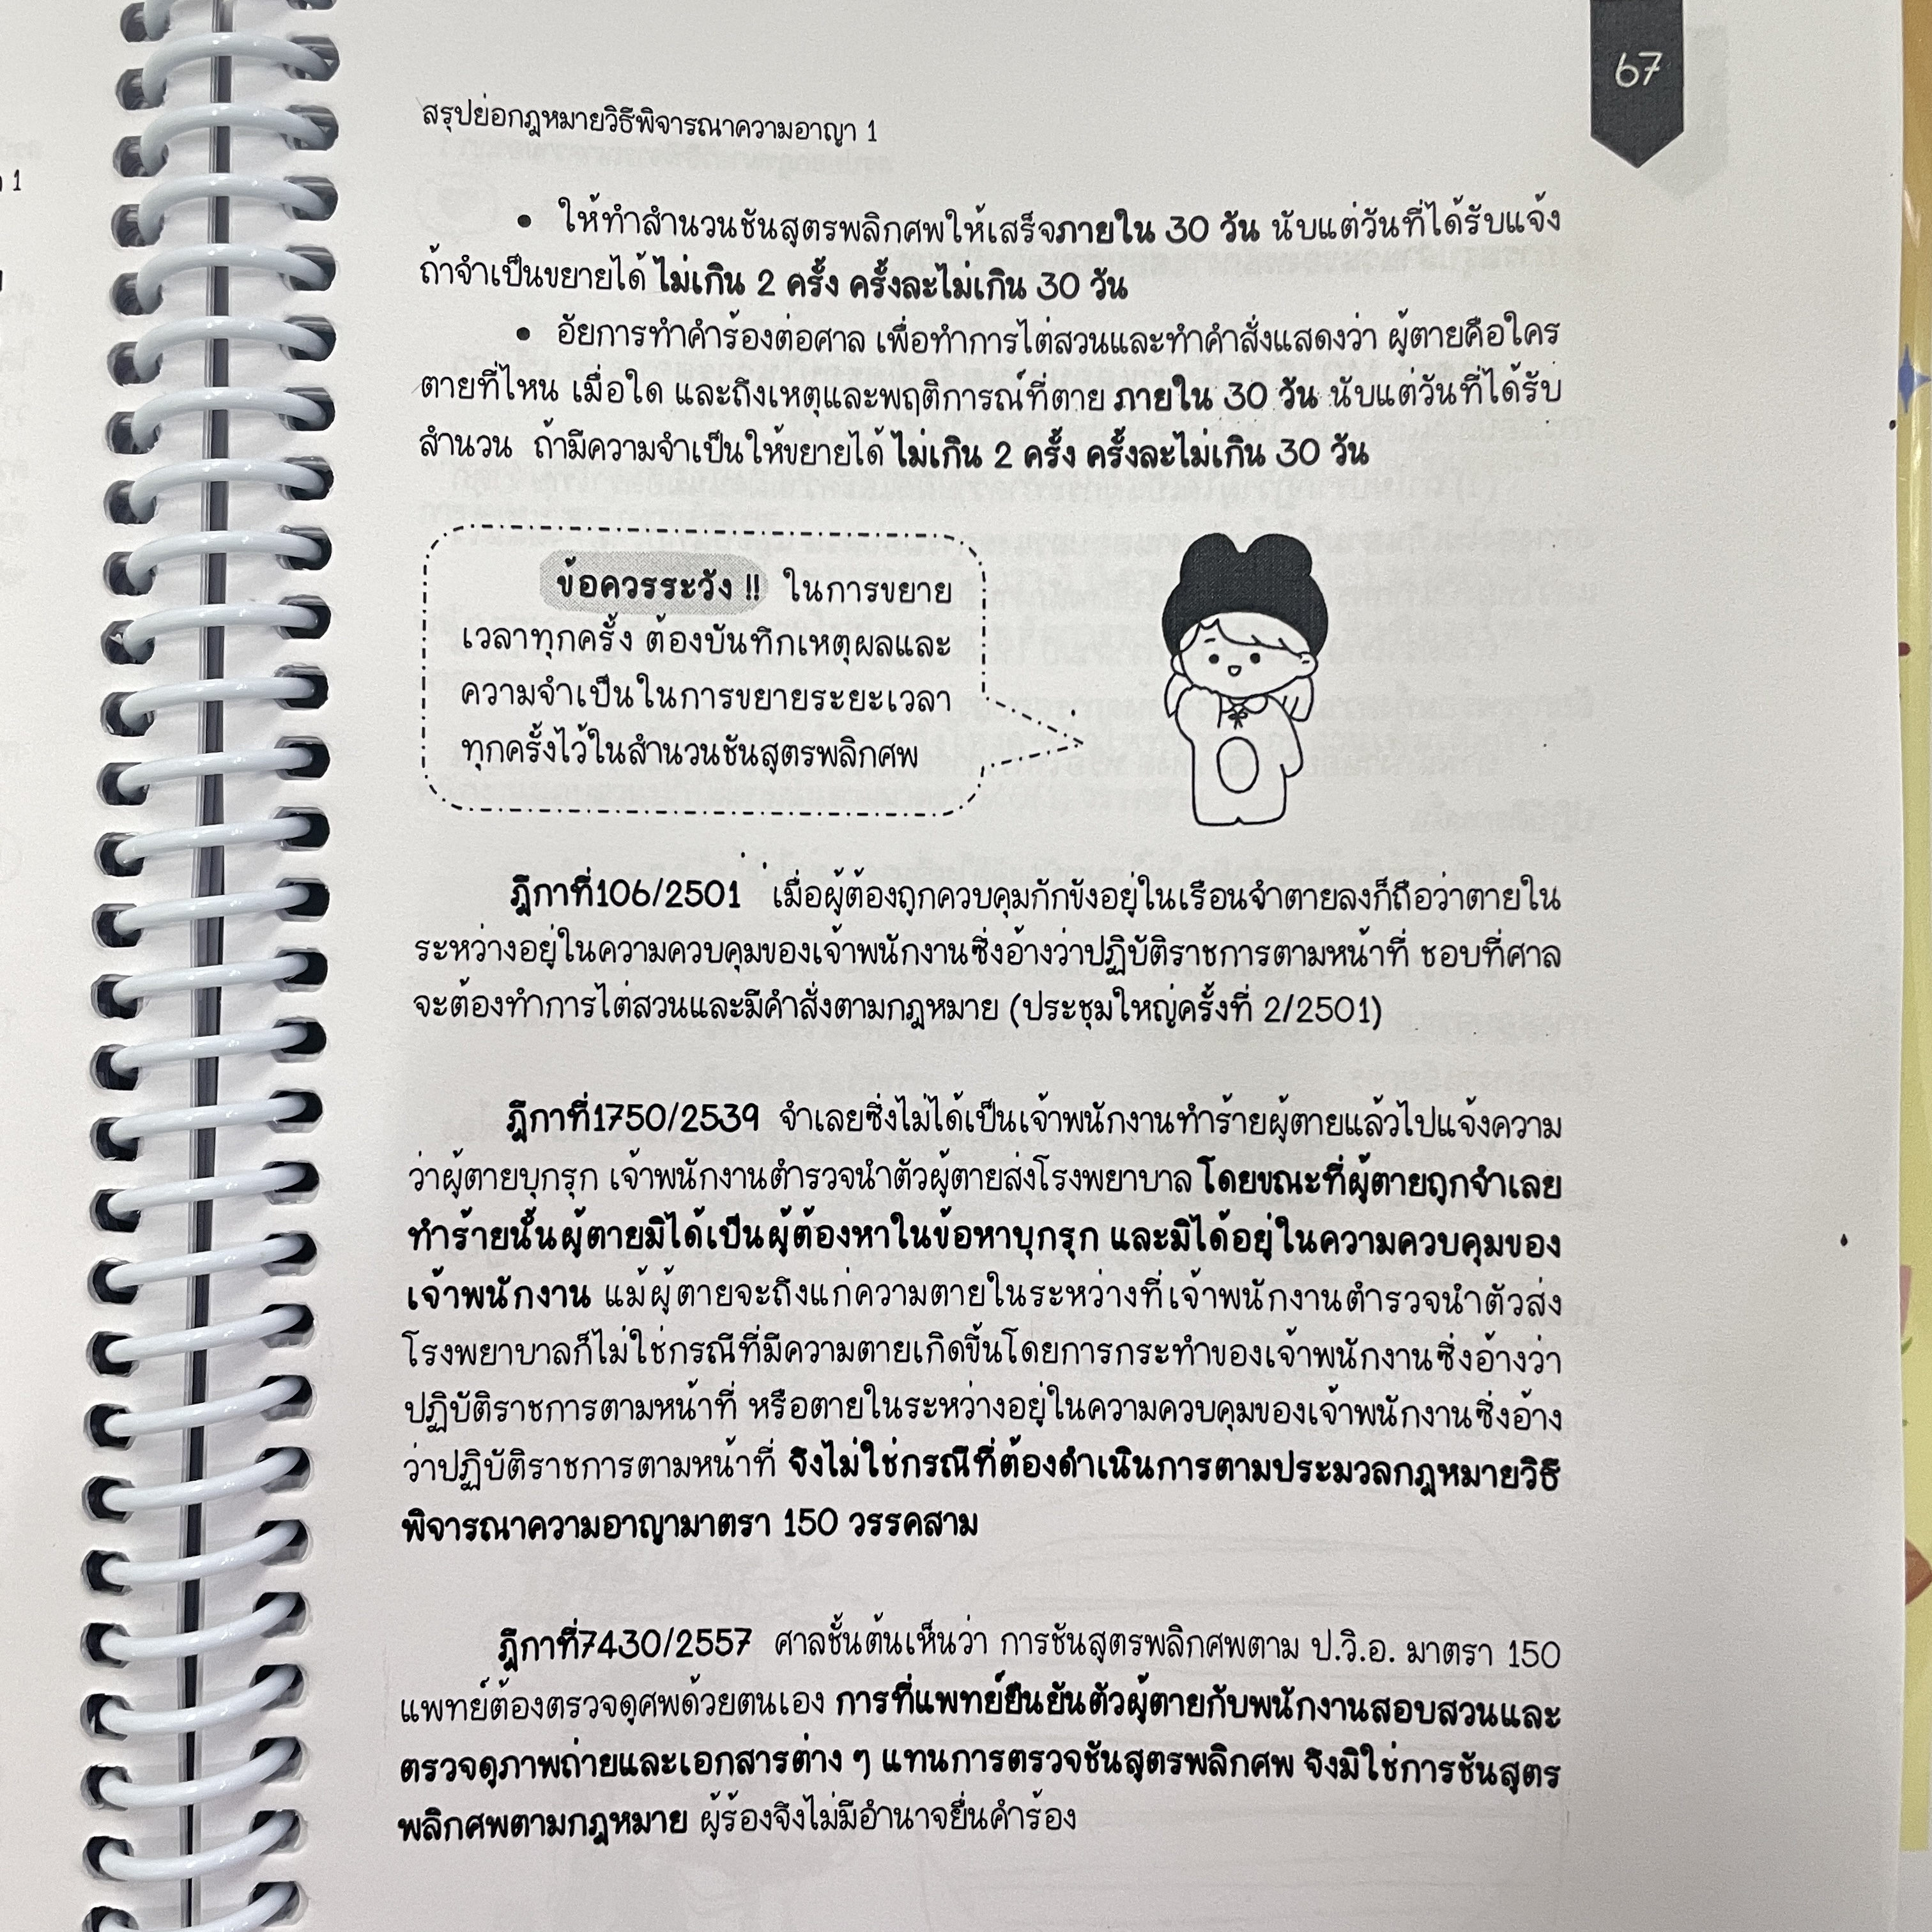 67
สรุปย่อกฎหมายวิธีพิจารณาความอาญา 1
• ให้ทำสำนวนชันสูตรพลิกศพให้เสร็จภายใน 30 วัน นับแต่วันที่ได้รับแจ้ง
ถ้าจำเป็นขยายได้ ไม่เกิน 2 ครั้ง ครั้งละไม่เกิน 30 วัน
• อัยการทำคำร้องต่อศาล เพื่อทำการไต่สวนและทำคำสั่งแสดงว่า ผู้ตายคือใคร
ตายที่ไหน เมื่อใด และถึงเหตุและพฤติการณ์ที่ตาย ภายใน 30 วัน นับแต่วันที่ได้รับ
สำนวน ถ้ามีความจำเป็นให้ขยายได้ ไม่เกิน 2 ครั้ง ครั้งละไม่เกิน 30 วัน
ข้อควรระวัง !! ในการขยาย
เวลาทุกครั้ง ต้องบันทึกเหตุผลและ
ความจำเป็นในการขยายระยะเวลา
ทุกครั้งไว้ในสำนวนชันสูตรพลิกศพ
ฎีกาที่106/2501 เมื่อผู้ต้องถูกควบคุมกักขังอยู่ในเรือนจำตายลงก็ถือว่าตายใน
ระหว่างอยู่ในความควบคุมของเจ้าพนักงานซึ่งอ้างว่าปฏิบัติราชการตามหน้าที่ ชอบที่ศาล
จะต้องทำการไต่สวนและมีคำสั่งตามกฎหมาย (ประชุมใหญ่ครั้งที่ 2/2501)
ฎีกาที่1750/2539 จำเลยซึ่งไม่ได้เป็นเจ้าพนักงานทำร้ายผู้ตายแล้วไปแจ้งความ
ว่าผู้ตายบุกรุก เจ้าพนักงานตำรวจนำตัวผู้ตายส่งโรงพยาบาล โดยขณะที่ผู้ตายถูกจำเลย
ทำร้ายนั้นผู้ตายมิได้เป็นผู้ต้องหาในข้อหาบุกรุก และมิได้อยู่ในความควบคุมของ
เจ้าพนักงาน แม้ผู้ตายจะถึงแก่ความตายในระหว่างที่เจ้าพนักงานตำรวจนำตัวส่ง
โรงพยาบาลก็ไม่ใช่กรณีที่มีความตายเกิดขึ้นโดยการกระทำของเจ้าพนักงานซึ่งอ้างว่า
ปฏิบัติราชการตามหน้าที่ หรือตายในระหว่างอยู่ในความควบคุมของเจ้าพนักงานซึ่งอ้าง
ว่าปฏิบัติราชการตามหน้าที่ จึงไม่ใช่กรณีที่ต้องดำเนินการตามประมวลกฎหมายวิธี
พิจารณาความอาญามาตรา 150 วรรคสาม
ฎีกาที่7430/2557 ศาลชั้นต้นเห็นว่า การชันสูตรพลิกศพตาม ป.วิ.อ. มาตรา 150
แพทย์ต้องตรวจดูศพด้วยตนเอง การที่แพทย์ยืนยันตัวผู้ตายกับพนักงานสอบสวนและ
ตรวจดูภาพถ่ายและเอกสารต่าง ๆ แทนการตรวจชันสูตรพลิกศพ จึงมิใช่การชันสูตร
พลิกศพตามกฎหมาย ผู้ร้องจึงไม่มีอำนาจยื่นคำร้อง